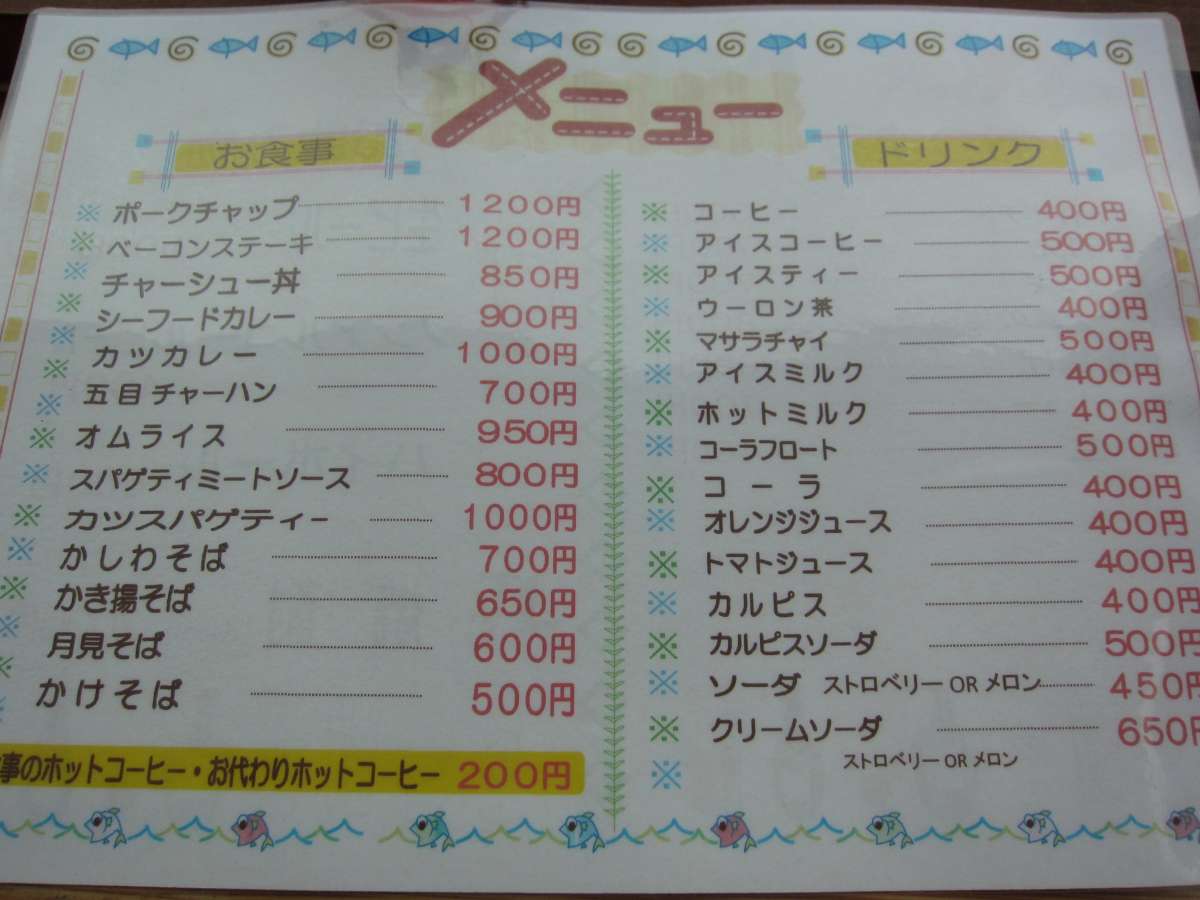 メニュー
お食事
※ ポークチャップ 1200円
※ ベーコンステーキ 1200円
※ チャーシュー丼 850円
※ シーフードカレー 900円
※ カツカレー 1000円
※ 五目チャーハン 700円
※ オムライス 950円
※ スパゲティミートソース 800円
※ カツスパゲティー 1000円
※ かしわそば 700円
※ かき揚そば 650円
※ 月見そば 600円
かけそば 500円
事のホットコーヒー・お代わりホットコーヒー 200円
ドリンク
※ コーヒー 400円
※ アイスコーヒー 500円
※ アイスティー 500円
※ ウーロン茶 400円
※ マサラチャイ 500円
※ アイスミルク 400円
※ ホットミルク 400円
※ コーラフロート 500円
※ コーラ 400円
※ オレンジジュース 400円
※ トマトジュース 400円
※ カルピス 400円
※ カルピスソーダ 500円
※ ソーダ ストロベリー OR メロン 450円
※ クリームソーダ 650円
※ ストロベリー OR メロン